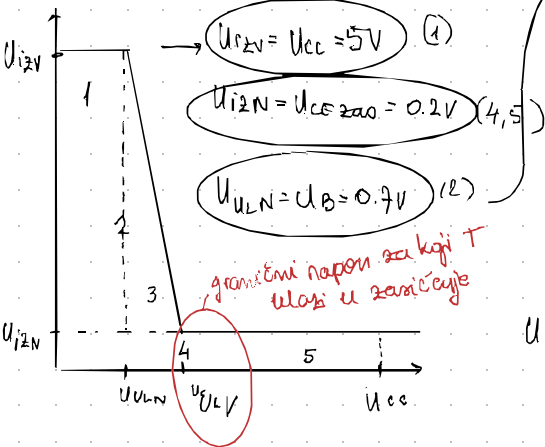 U_IZV = U_CC = 5V (1)
U_IZV
1
U_IZN = U_CE zas = 0.2V (4,5)
U_ULN = U_B = 0.7V (2)
2
granični napon za koji T
ulazi u zasićenje
3
U_IZN
U
4 5
U_ULN U_ULV U_CC